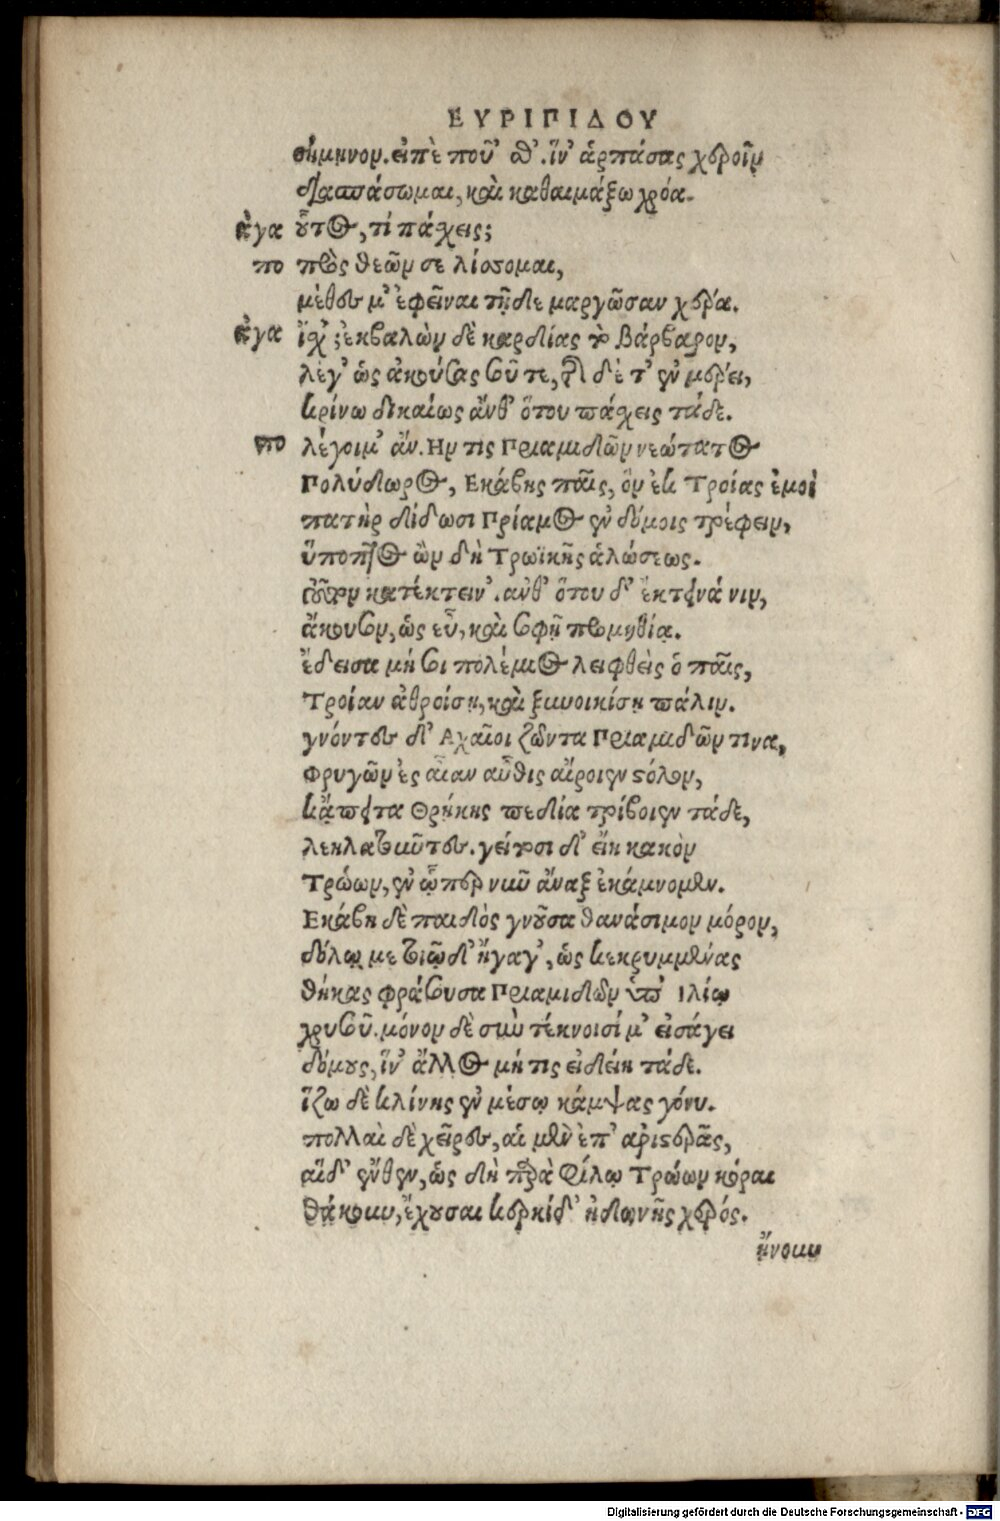 ΕΥΡΙΠΙΔΟΥ
σήμηνον. εἰπὲ ποῦ 'σθ'. ἵν' ἁρπάσας χεροῖν
διασπάσωμαι, καὶ καθαιμάξω χρόα.
ἀγα οὗτος, τί πάχεις;
πο πρὸς θεῶν σε λίσσομαι,
μέθες μ' ἐφεῖναι τῇδε μαργῶσαν χέρα.
ἀγα ἴχ'; ἐκβαλὼν δὲ καρδίας τὸ βάρβαρον,
λέγ' ὡς ἀκούσας σοῦ τε, τῆσδέ τ' ἐν μέρει,
κρίνω δικαίως ἀνθ' ὅτου πάχεις τάδε.
πο λέγοιμ' ἄν. Ην τις Πριαμιδῶν νεώτατος
Πολύδωρος, Εκάβης παῖς, ὃν ἐκ Τροίας ἐμοὶ
πατὴρ δίδωσι Πρίαμος ἐν δόμοις τρέφειν,
ὕποπτος ὢν δὴ Τρωϊκῆς ἁλώσεως.
τοῦτον κατέκτειν'. ἀνθ' ὅτου δ' ἔκτεινά νιν,
ἄκουσον, ὡς εὖ, καὶ σοφῇ προμηθίᾳ.
ἔδεισα μή σοι πολέμιος λειφθεὶς ὁ παῖς,
Τροίαν ἀθροίσῃ, καὶ ξυνοικίσῃ πάλιν.
γνόντες δ' Αχαῖοι ζῶντα Πριαμιδῶν τινα,
Φρυγῶν ἐς αἶαν αὖθις αἴροιεν στόλον,
κἄπειτα Θρῄκης πεδία τρίβοιεν τάδε,
λεηλατοῦντες. γείτοσι δ' εἴη κακὸν
Τρώων, ἐν ᾧπερ νῦν ἄναξ ἐκάμνομεν.
Εκάβη δὲ παιδὸς γνοῦσα θανάσιμον μόρον,
δόλῳ με τοιῷδ' ἤγαγ', ὡς κεκρυμμένας
θήκας φράσουσα Πριαμιδῶν ὑπ' Ιλίῳ
χρυσοῦ. μόνον δὲ σὺν τέκνοισί μ' εἰσάγει
δόμους, ἵν' ἄλλος μή τις εἰδείη τάδε.
ἵζω δὲ κλίνης ἐν μέσῳ κάμψας γόνυ.
πολλαὶ δὲ χεῖρες, αἱ μὲν ἐπ' ἀριστερᾶς,
αἵδ' ἔνθεν, ὡς δὴ παρὰ φίλῳ Τρώων κόραι
θάκουν, ἔχουσαι κερκίδ' ἠδωνῆς χερός.
ᾔνουν
Digitalisierung gefördert durch die Deutsche Forschungsgemeinschaft - DFG